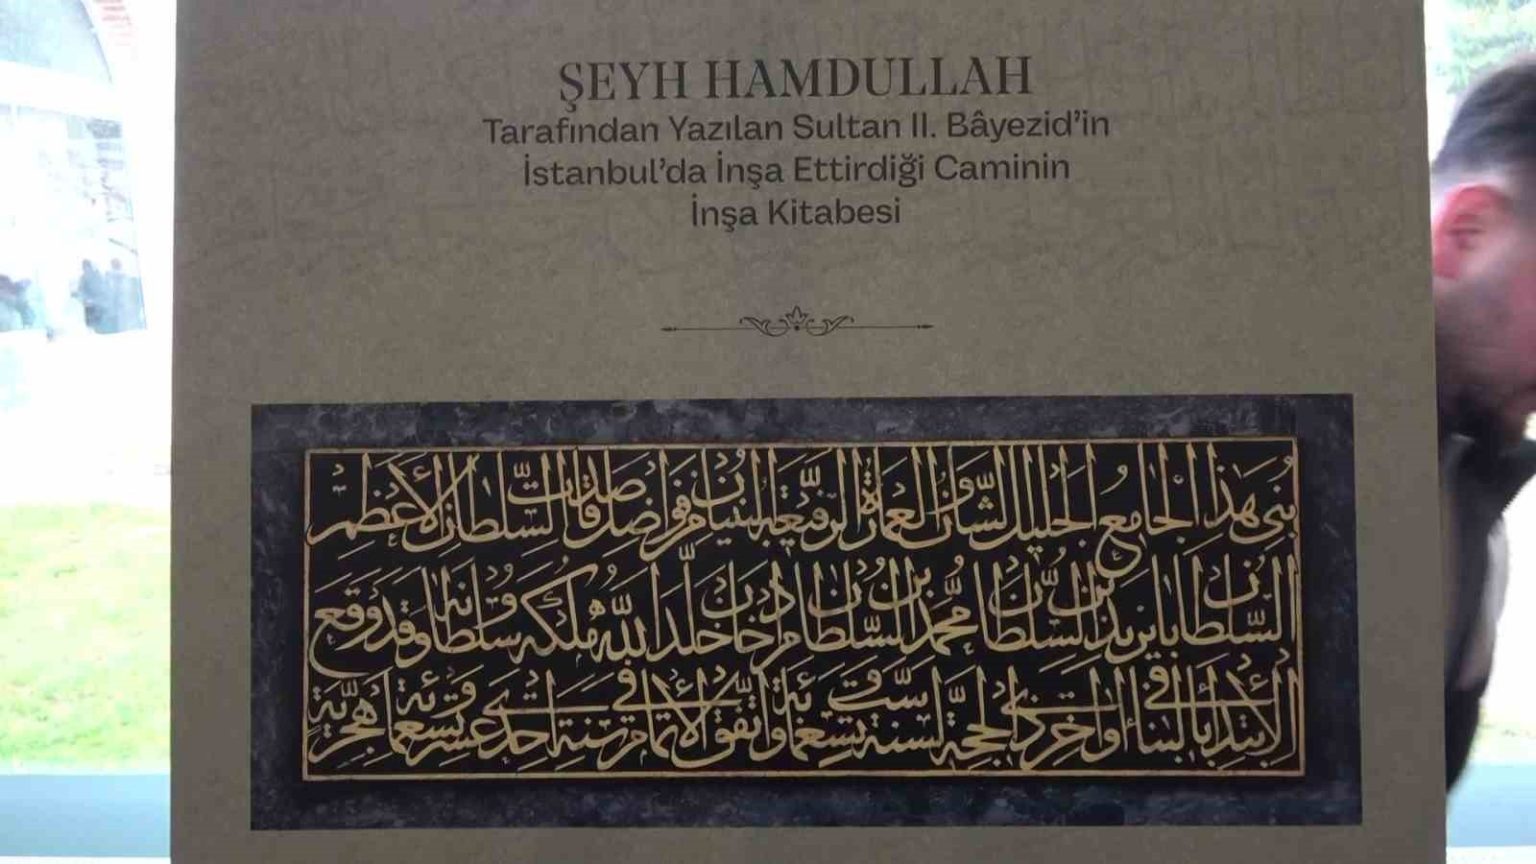 ŞEYH HAMDULLAH
Tarafından Yazılan Sultan II. Bâyezid’in
İstanbul’da İnşa Ettirdiği Caminin
İnşa Kitabesi
بنى هذا الجامع الجليل الشان والعمارة الرفيعة البنيان من فواضل صدقات السلطان الأعظم
السلطان بايزيد بن السلطان محمد بن السلطان مراد خان خلد الله ملكه وسلطانه وقد وقع
الابتداء بالبناء في أواخر ذي الحجة لسنة ست وتسعمائة واتفق الاتمام في سنة احدى عشرة وتسعمائة هجرية